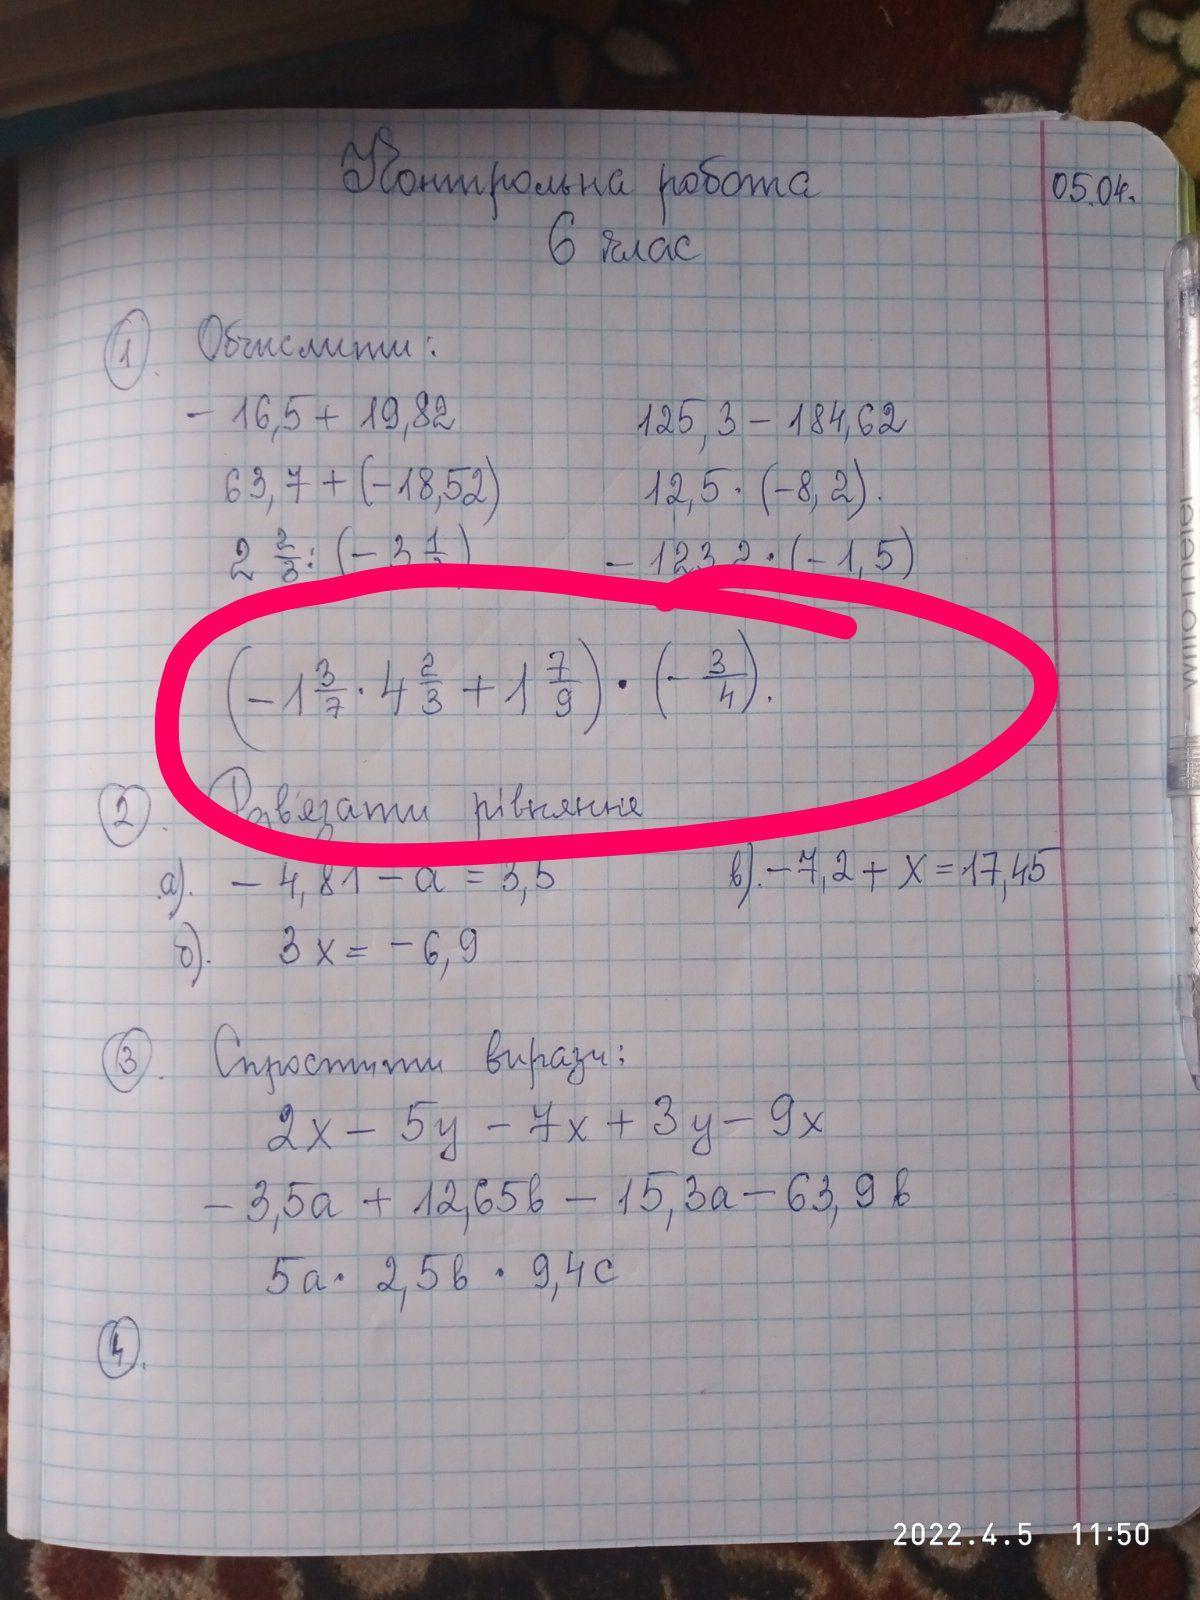 Контрольна робота 05.04.
6 клас
1. Обчислити:
- 16,5 + 19,82 125,3 - 184,62
63,7 + (-18,52) 12,5 · (-8,2).
2 2/3 : (-3 1/ ) - 123,2 · (-1,5)
(-1 3/7 · 4 2/3 + 1 7/9) · (- 3/4).
2. Розв'язати рівняння
а). - 4,81 - a = 3,5 в). -7,2 + x = 17,45
б). 3x = -6,9
3. Спростити вирази:
2x - 5y - 7x + 3y - 9x
- 3,5a + 12,65b - 15,3a - 63,9b
5a · 2,5b · 9,4c
4.
2022.4.5 11:50